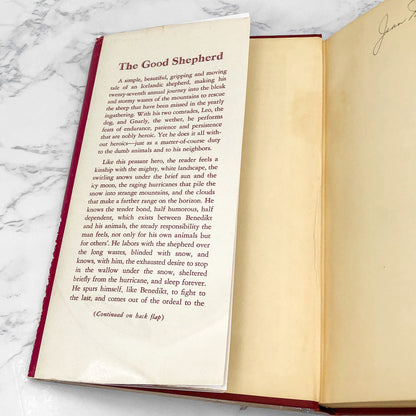 The Good Shepherd
A simple, beautiful, gripping and moving
tale of an Icelandic shepherd, making his
twenty-seventh annual journey into the bleak
and stormy wastes of the mountains to rescue
the sheep that have been missed in the yearly
ingathering. With his two comrades, Leo, the
dog, and Gnarly, the wether, he performs
feats of endurance, patience and persistence
that are nobly heroic. Yet he does it all with-
out heroics—just as a matter-of-course duty
to the dumb animals and to his neighbors.
Like this peasant hero, the reader feels a
kinship with the mighty, white landscape, the
swirling snows under the brief sun and the
icy moon, the raging hurricanes that pile the
snow into strange mountains, and the clouds
that make a farther range on the horizon. He
knows the tender bond, half humorous, half
dependent, which exists between Benedikt
and his animals, the steady responsibility the
man feels, not only for his own animals but
for others'. He labors with the shepherd over
the long wastes, blinded with snow, and
knows, with him, the exhausted desire to stop
in the wallow under the snow, sheltered
briefly from the hurricane, and sleep forever.
He spurs himself, like Benedikt, to fight to
the last, and comes out of the ordeal to the
(Continued on back flap)
Jean